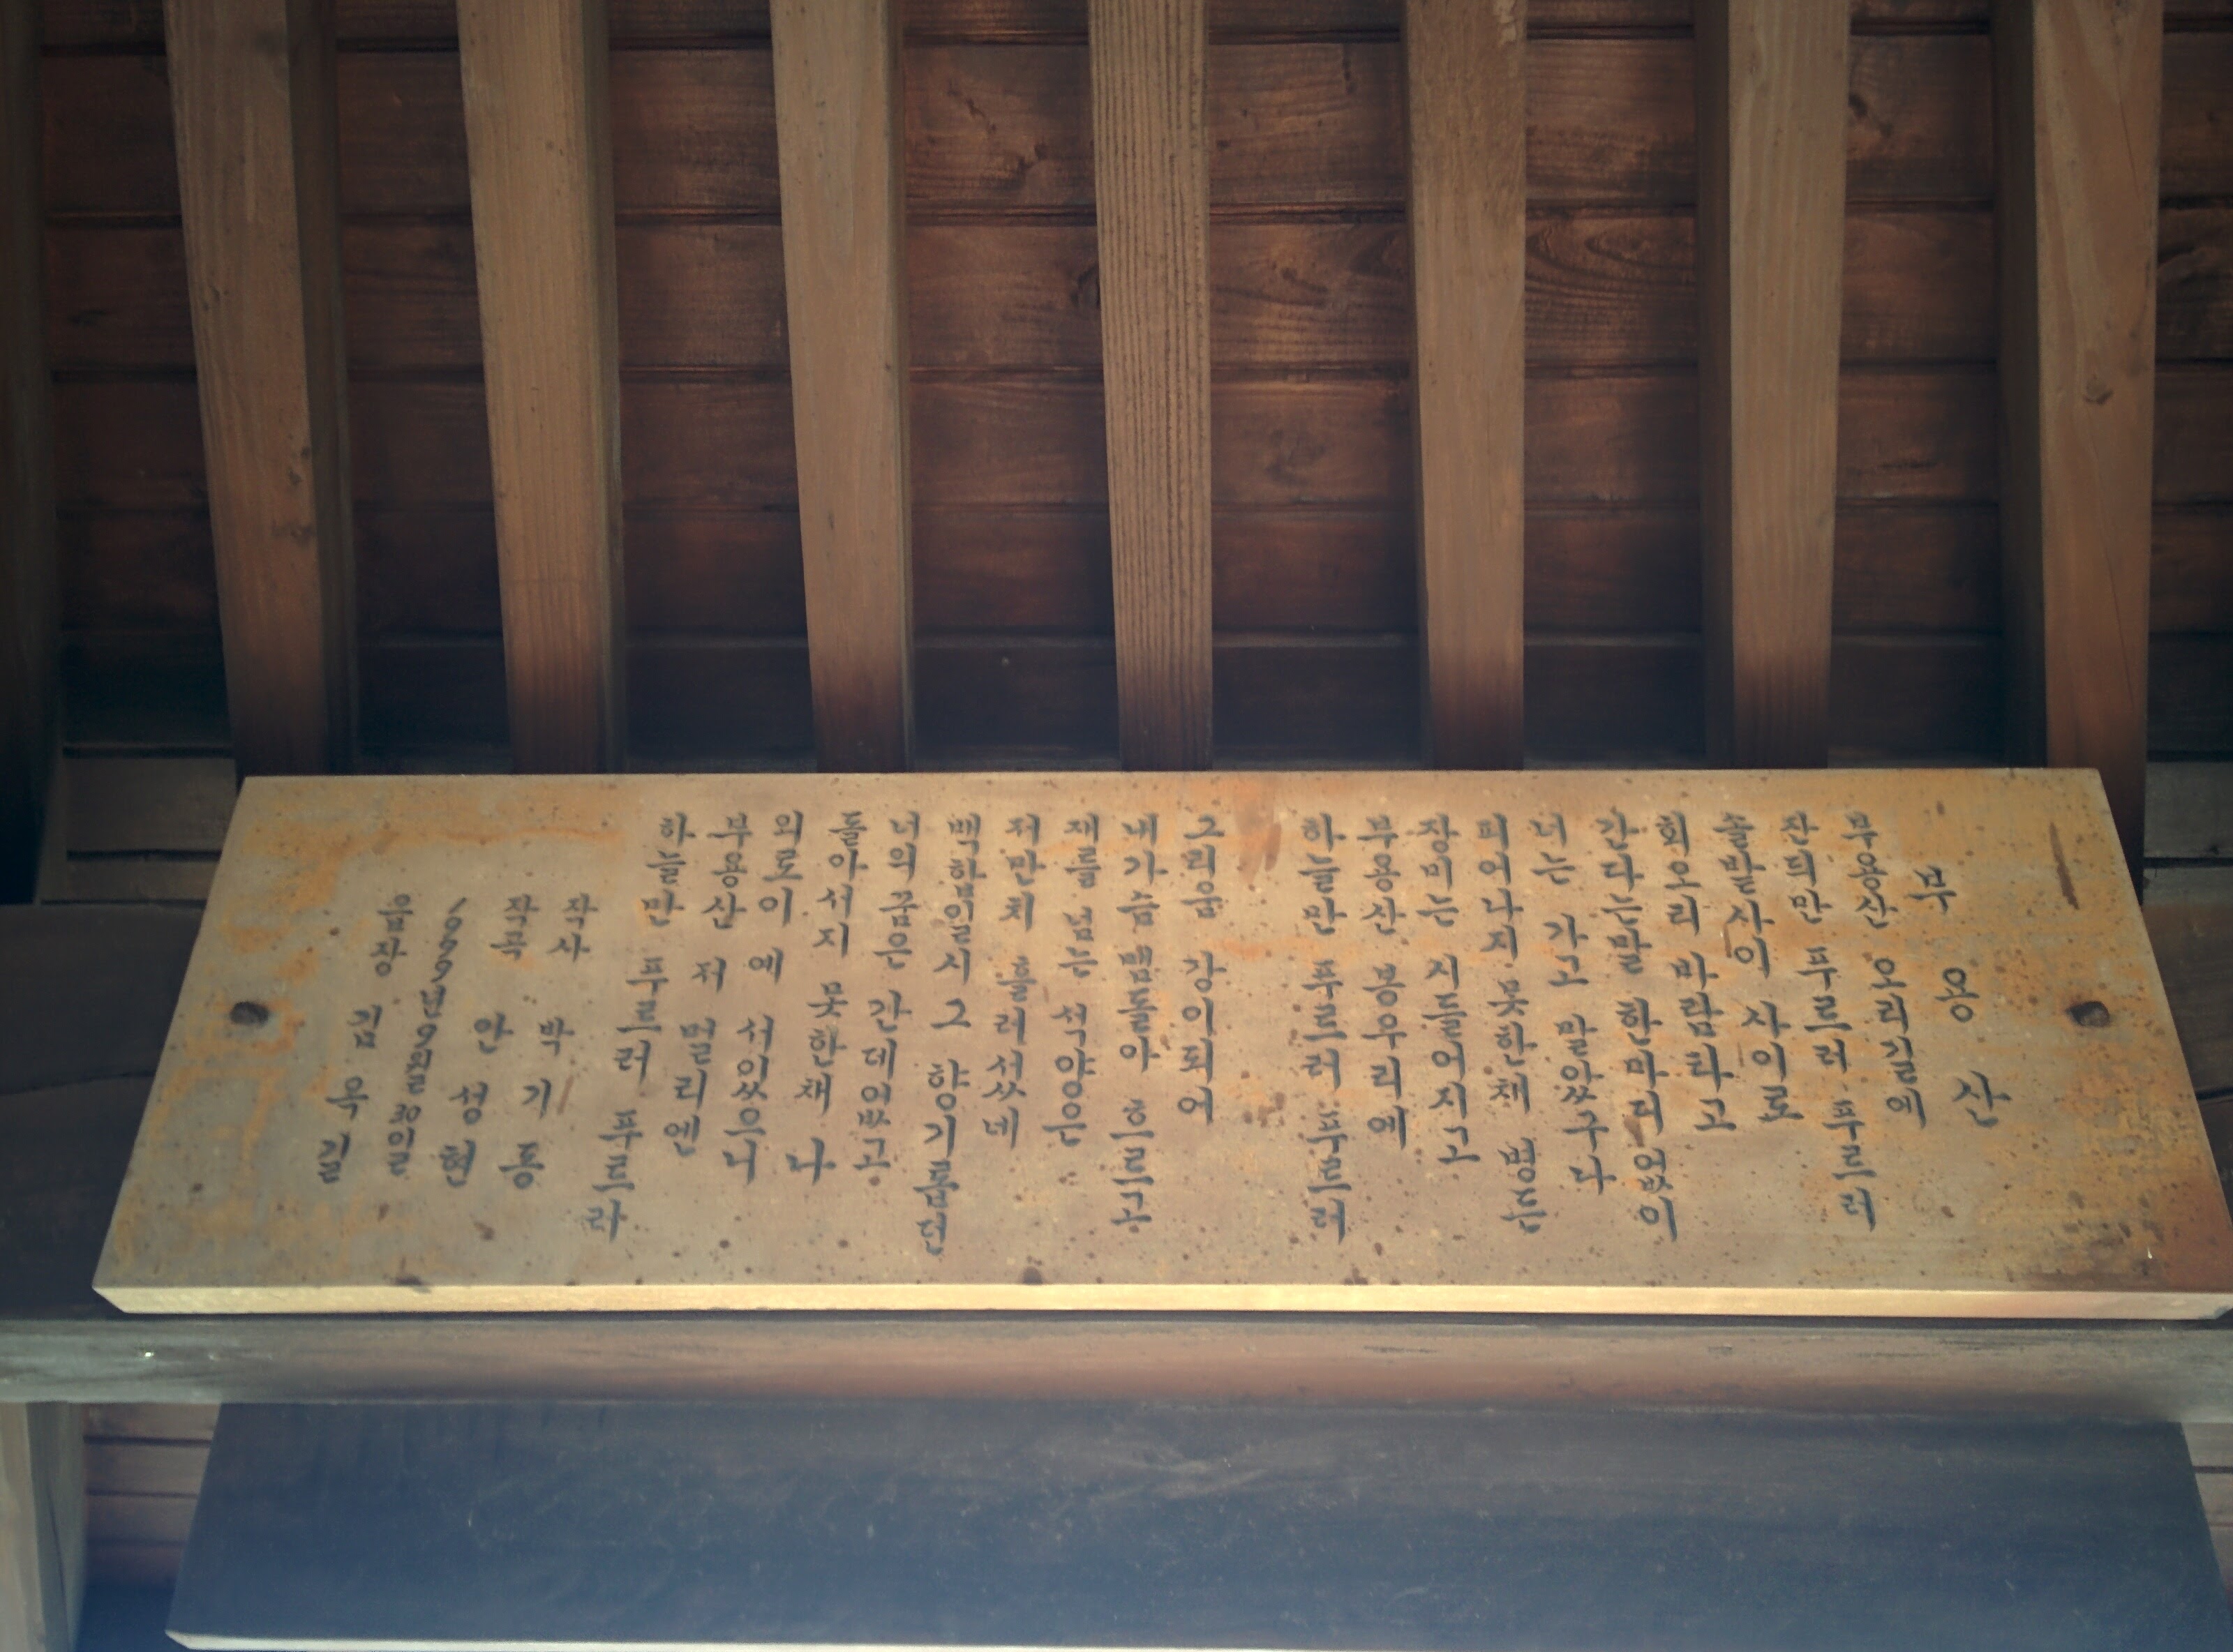 부 용 산
부용산 오리길에
잔듸만 푸르러 푸르러
솔밭사이 사이로
회오리 바람타고
간다는말 한마디 없이
너는 가고 말았구나
피어나지 못한채 병든
장미는 시들어지고
부용산 봉우리에
하늘만 푸르러 푸르러
그리움 강이되어
내가슴 맴돌아 흐르고
재를 넘는 석양은
저만치 홀러섰네
백합일시 그 향기롭던
너의꿈은 간데없고
돌아서지 못한채 나
외로이 예 서있으니
부용산 저 멀리엔
하늘만 푸르러 푸르라
작사 박기동
작곡 안성현
1999년 9월 30일
읍장 김옥길